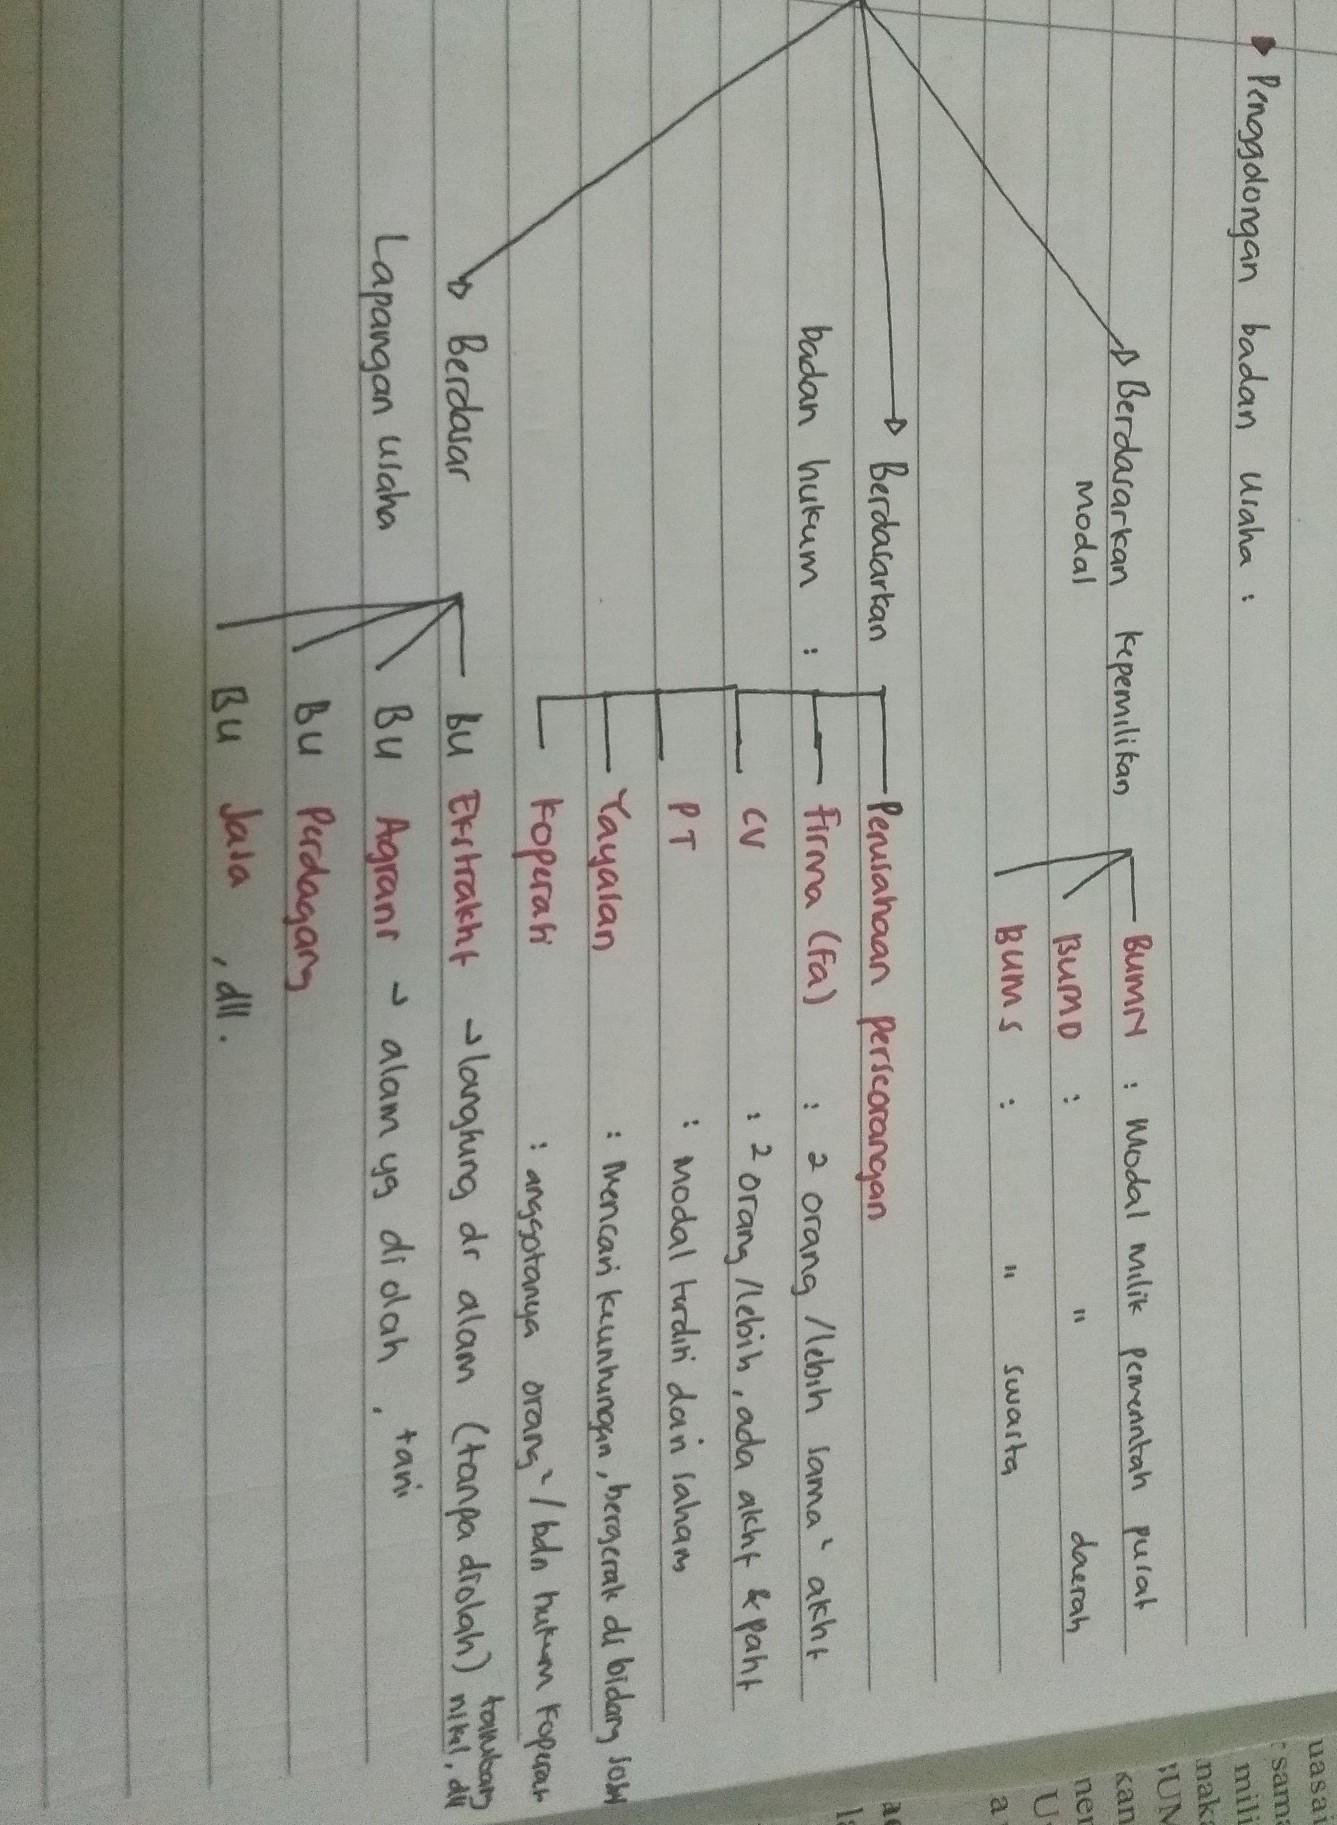 Penggolongan badan usaha :
Berdasarkan kepemilikan
Modal
BUMN : Modal milik pemerintah pusat
BUMD : " daerah
BUMS : " swasta
Berdasarkan
badan hukum :
Perusahaan perseorangan
Firma (Fa) : 2 orang /lebih sama² aktif
CV : 2 orang /lebih, ada aktif & pasif
PT : Modal terdiri dari saham
Yayasan : Mencari keuntungan, bergerak di bidang sosial
Koperasi : anggotanya orang² / bdn hukum koperasi
Berdasar
Lapangan usaha
BU Ekstraktif → langsung dr alam (tanpa diolah) tambang
nikel, dll
BU Agraris → alam yg di olah, tani
BU Perdagang
BU Jasa , dll.
uasai
sama
mili
nak
UM
kan
ner
U
a